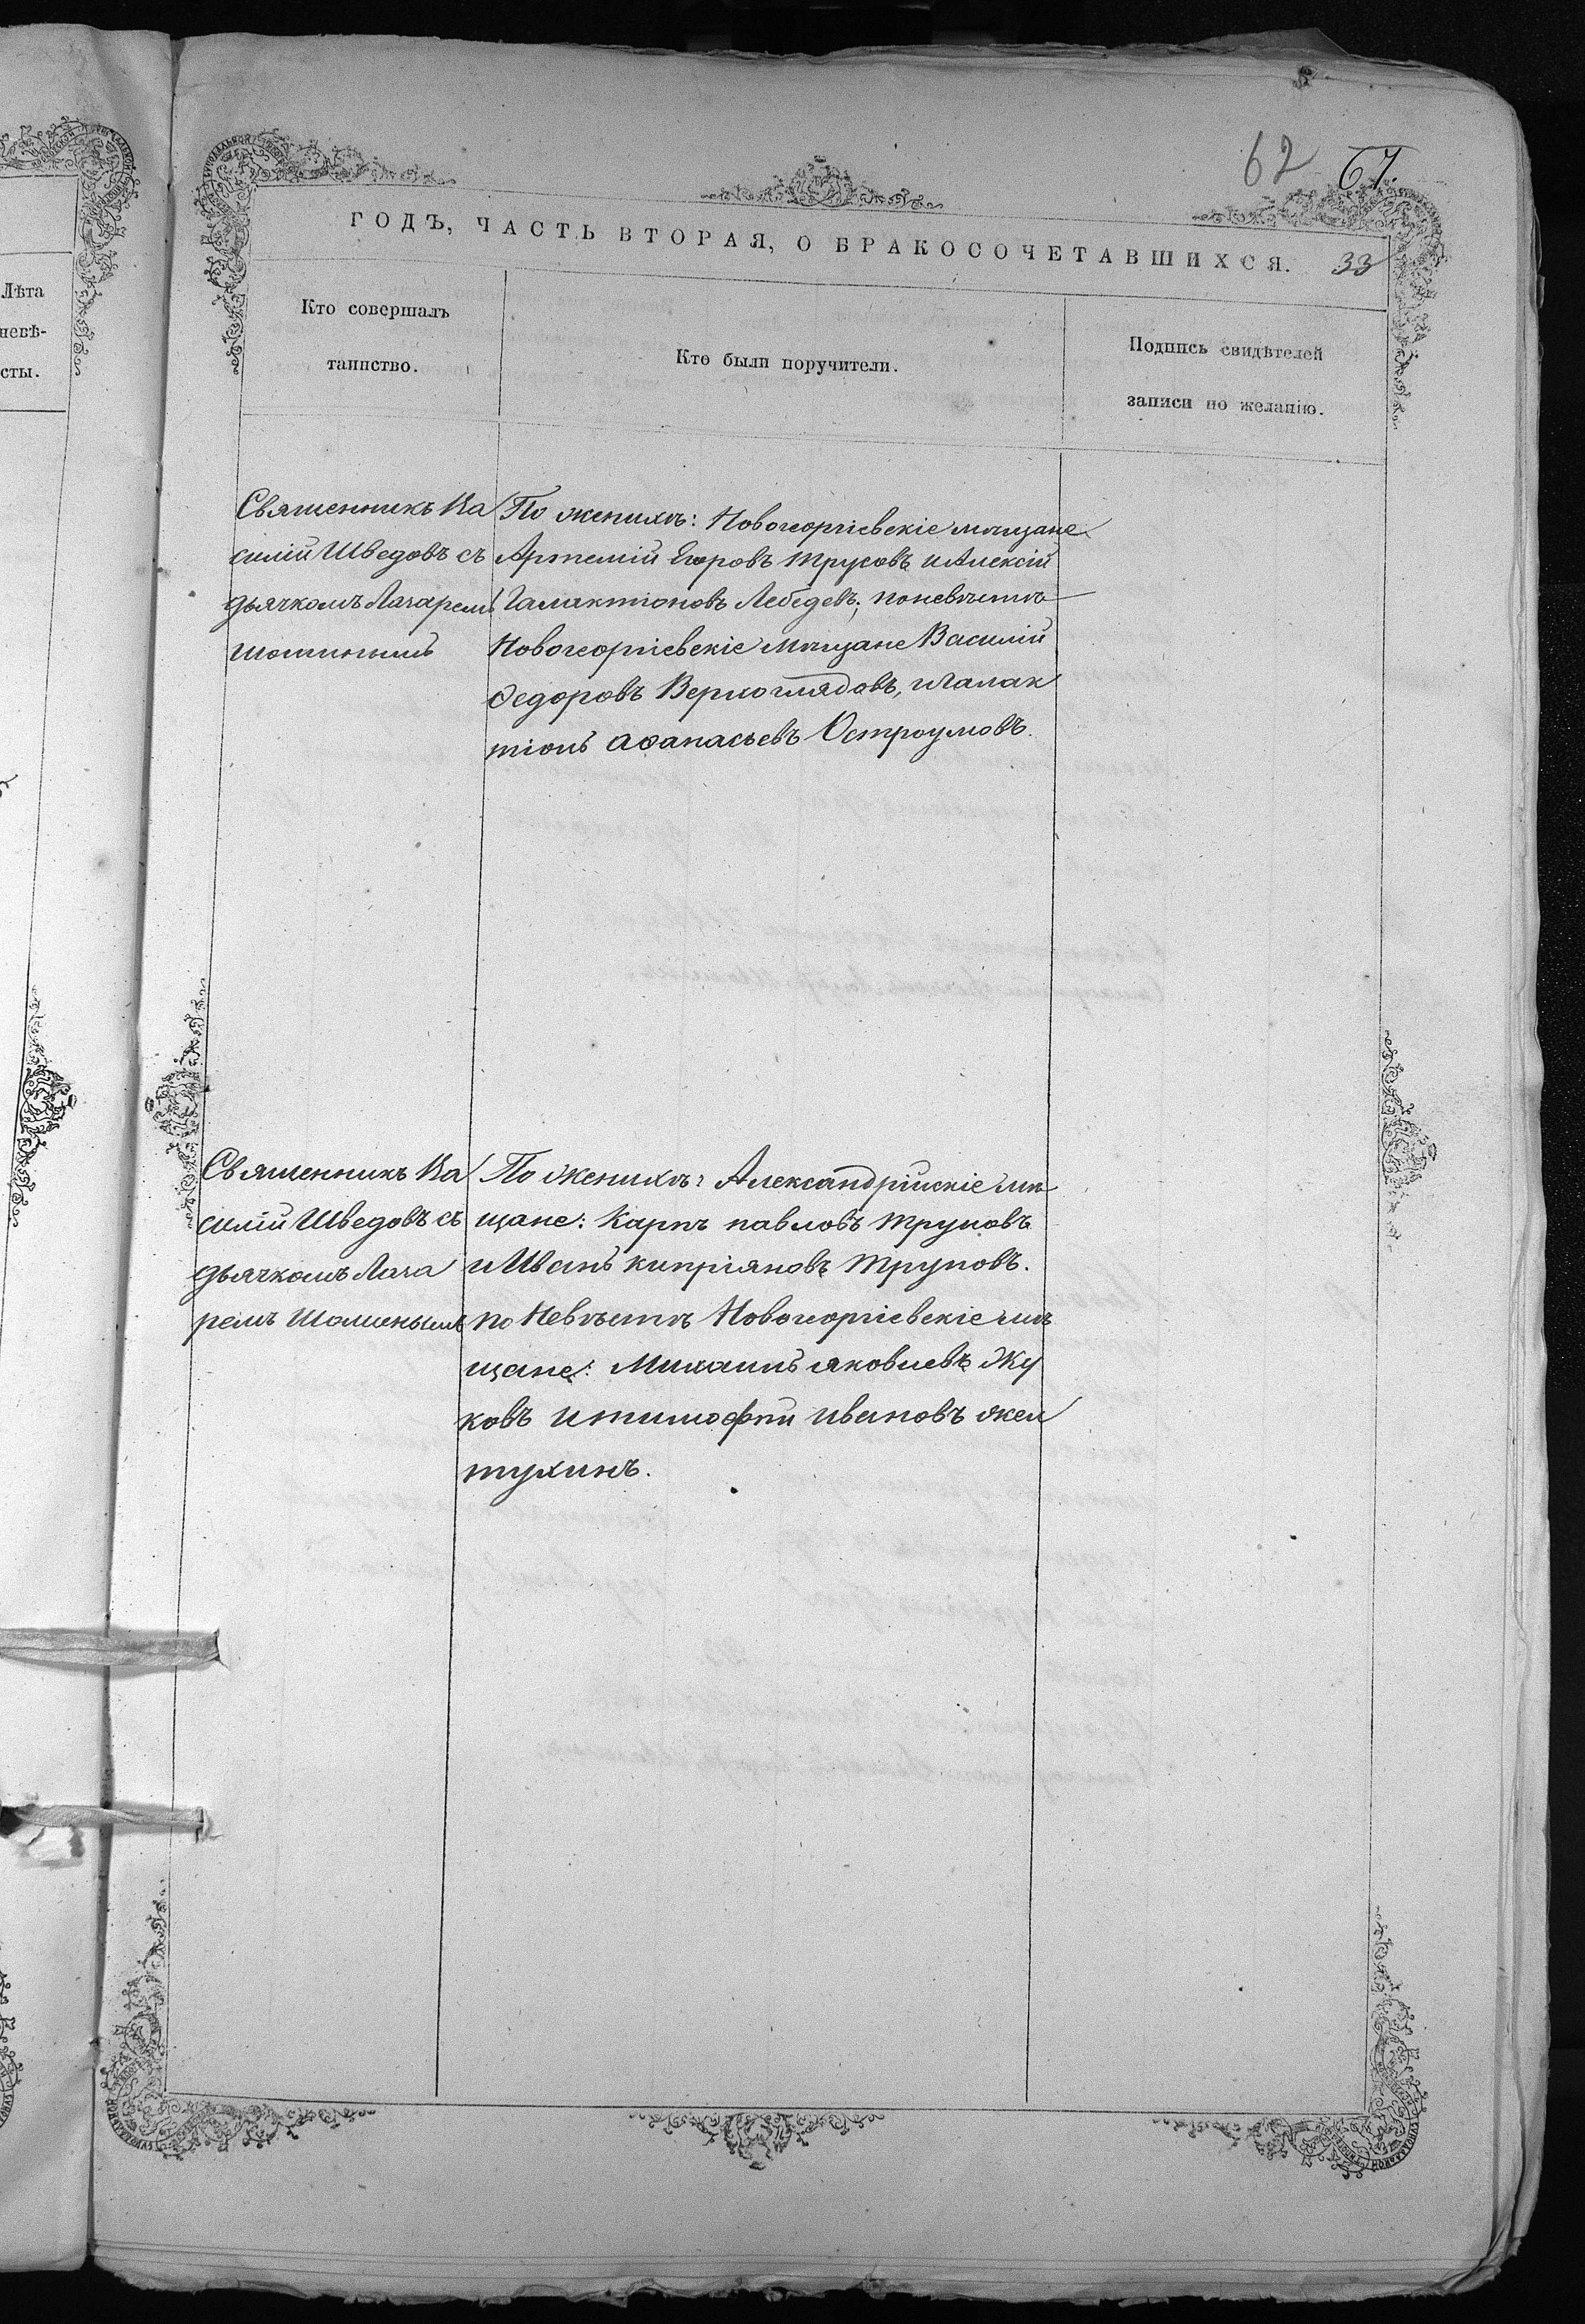 62 67.
ГОДЪ, ЧАСТЬ ВТОРАЯ, О БРАКОСОЧЕТАВШИХСЯ. 33
Лѣта
невѣ-
сты.
Кто совершалъ
таинство.
Кто были поручители.
Подпись свидѣтелей
записи по желанію.
Священникъ Ва
силій Шведовъ съ
дьячкомъ Лазарем
По женихѣ: Новогеоргіевскіе мѣщане
Артемій Егоровъ Трусовъ и Алексій
Галактіоновъ Лебедевъ; по невѣстѣ
Новогеоргіевскіе мѣщане Василій
Ѳедоровъ Верхоглядовъ, и Галак
тіонъ Аѳанасьевъ Остроумовъ.
Священникъ Ва
силій Шведовъ съ
дьячкомъ Лаза
ремъ Шошинымъ
По женихѣ: Александрійскіе мѣ
щане: Карпъ павловъ Труновъ
и Иванъ кипріяновъ Труновъ.
по Невѣстѣ Новогеоргіевскіе мѣ
щане: Михаилъ яковлевъ Жу
ковъ и тимофѣй ивановъ жел
тухинъ.